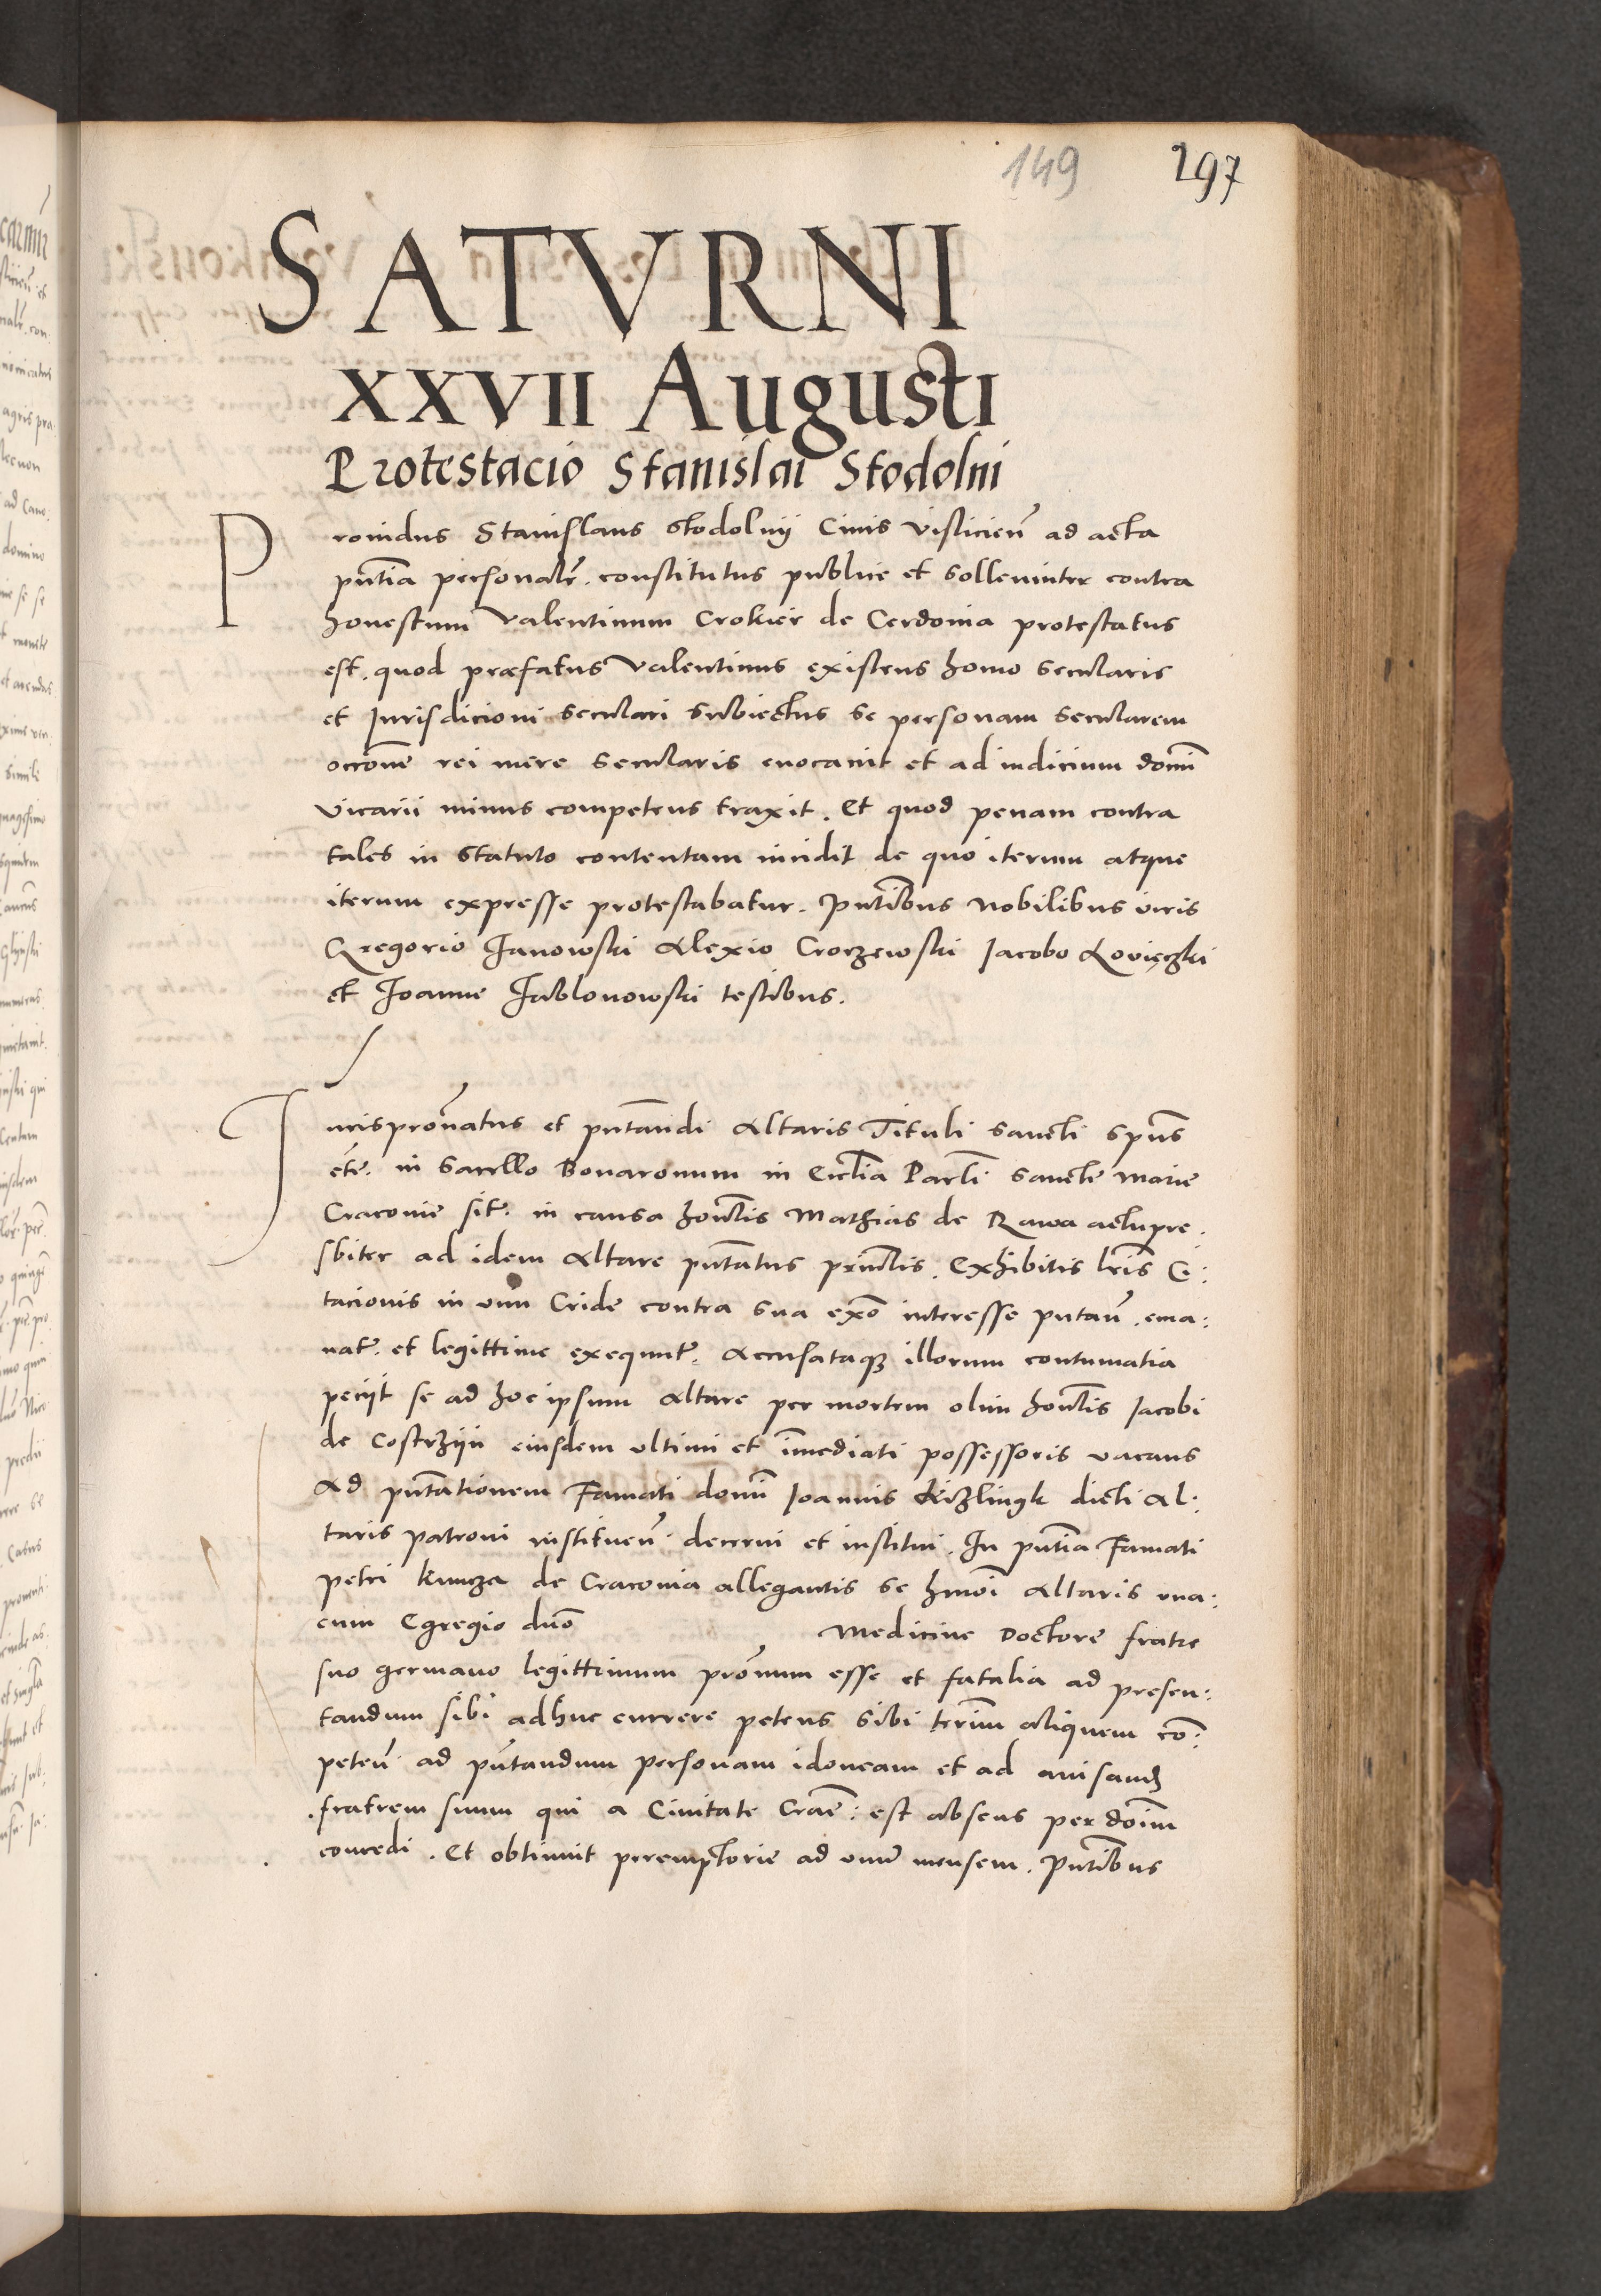 149 297
SATVRNI
XXVII Augusti
Protestacio Stanislai Stodolni
Prouidus Stanislaus Stodolnÿ Ciuis Vislicieñ ad acta
pñtia personalr̃. constitutus publice et sollenniter contra
honestum Valentinum Crokier de Cerdonia protestatus
est. quod præfatus Valentinus existens homo secularis
et Iurisdicioni seculari subiectus se personam secularem
occĩone rei mere secularis euocauit et ad iudicium domĩ
vicarii minus competens traxit. Et quod penam contra
tales in statuto contentam incidit de quo iterum atque
iterum expresse protestabatur. Pñtibus Nobilibus viris
Gregorio Janowski Alexio Crorzewski Iacobo Lovięczki
et Joanne Jablonowski testibus.
Jurisprõnatus et pñtandi Altaris Tituli sancti spũs
etc̃. in Sacello Bonaronum in Ecclia Parlĩ sancte Marie
Cracouie sit̃. in causa honłis Mathias de Rawa actu pre.
sbiter ad idem Altare pñtatus principłis. Exhibitis lr̃is Ci:
tacionis in vim Cride contra sua exõ interesse putañ. ema:
nat̃. et legittime exequut̃. Accusataq3 illorum contumatia
peciit se ad hoc ipsum Altare per mortem olim honłis Iacobi
de Costrzijn eiusdem vltimi et im̃ediati possessoris vacans
Ad pñtationem Famati domĩ Ioannis Kizlingk dicti Al:
taris patroni instituen̄ decerni et institui. In pñtia Famati
petri Kuncza de Cracouia allegantis se hmõi Altaris vna:
cum Egregio dnõ Medicine Doctore fratre
suo germano legittimum prõnum esse et fatalia ad presen:
tandum sibi adhuc currere petens sibi term̃ aliquem cõ:
peteñ ad pñtandum personam idoneam et ad auisand3
fratrem suum qui a Ciuitate Crac̃: est absens per doĩm
concedi. Et obtinuit peremptorie ad vnũ mensem. Pñtibus